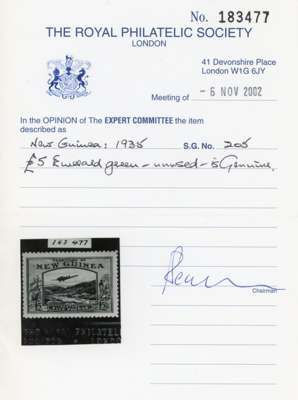 No. 183477
THE ROYAL PHILATELIC SOCIETY
LONDON
41 Devonshire Place
London W1G 6JY
Meeting of - 6 NOV 2002
In the OPINION of The EXPERT COMMITTEE the item
described as
New Guinea; 1935 S.G. No. 205
£5 Emerald green - unused - is Genuine.
Chairman
183 477
NEW GUINEA
THE ROYAL PHILATEL
LONDON